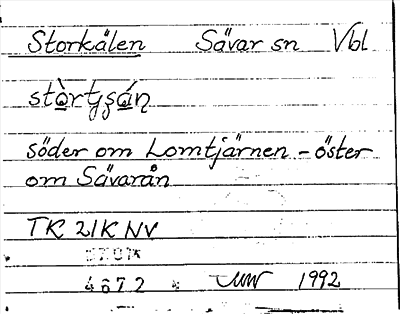 Storkälen Sävar sn Vbl
stòrtʂʂán
söder om Lomtjärnen - öster
om Sävarån
TK 21K NV
4672 1992